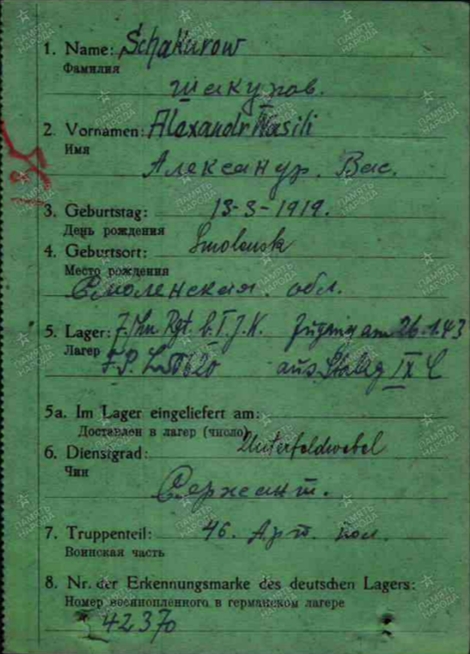 1. Name: Schakurow
Фамилия
Шакуров.
2. Vornamen: Alexandr Wasili
Имя
Александр. Вас.
3. Geburtstag: 13-3-1919.
День рождения
4. Geburtsort: Smolensk
Место рождения
Смоленская. обл.
5. Lager: Zugang am 26.1.43
Лагер F.P. aus Stalag IX C
5a. Im Lager eingeliefert am:
Доставлен в лагер (число)
6. Dienstgrad: Unterfeldwebel
Чин
Сержант.
7. Truppenteil: 46. Арт. пол.
Воинская часть
8. Nr. der Erkennungsmarke des deutschen Lagers:
Номер военнопленного в германском лагере
42370